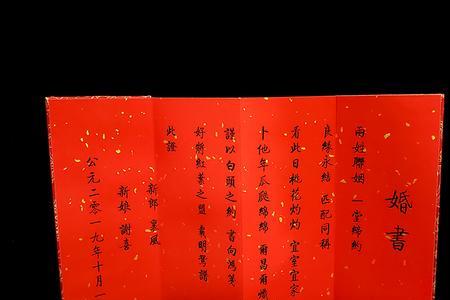 婚書
兩姓聯姻 一堂締約
良緣永結 匹配同稱
看此日桃花灼灼 宜室宜家
卜他年瓜瓞綿綿 爾昌爾熾
謹以白頭之約 書向鴻箋
好將紅葉之盟 載明鴛譜
此證
新郎 皇風
新娘 謝喜
公元二零一九年十月一